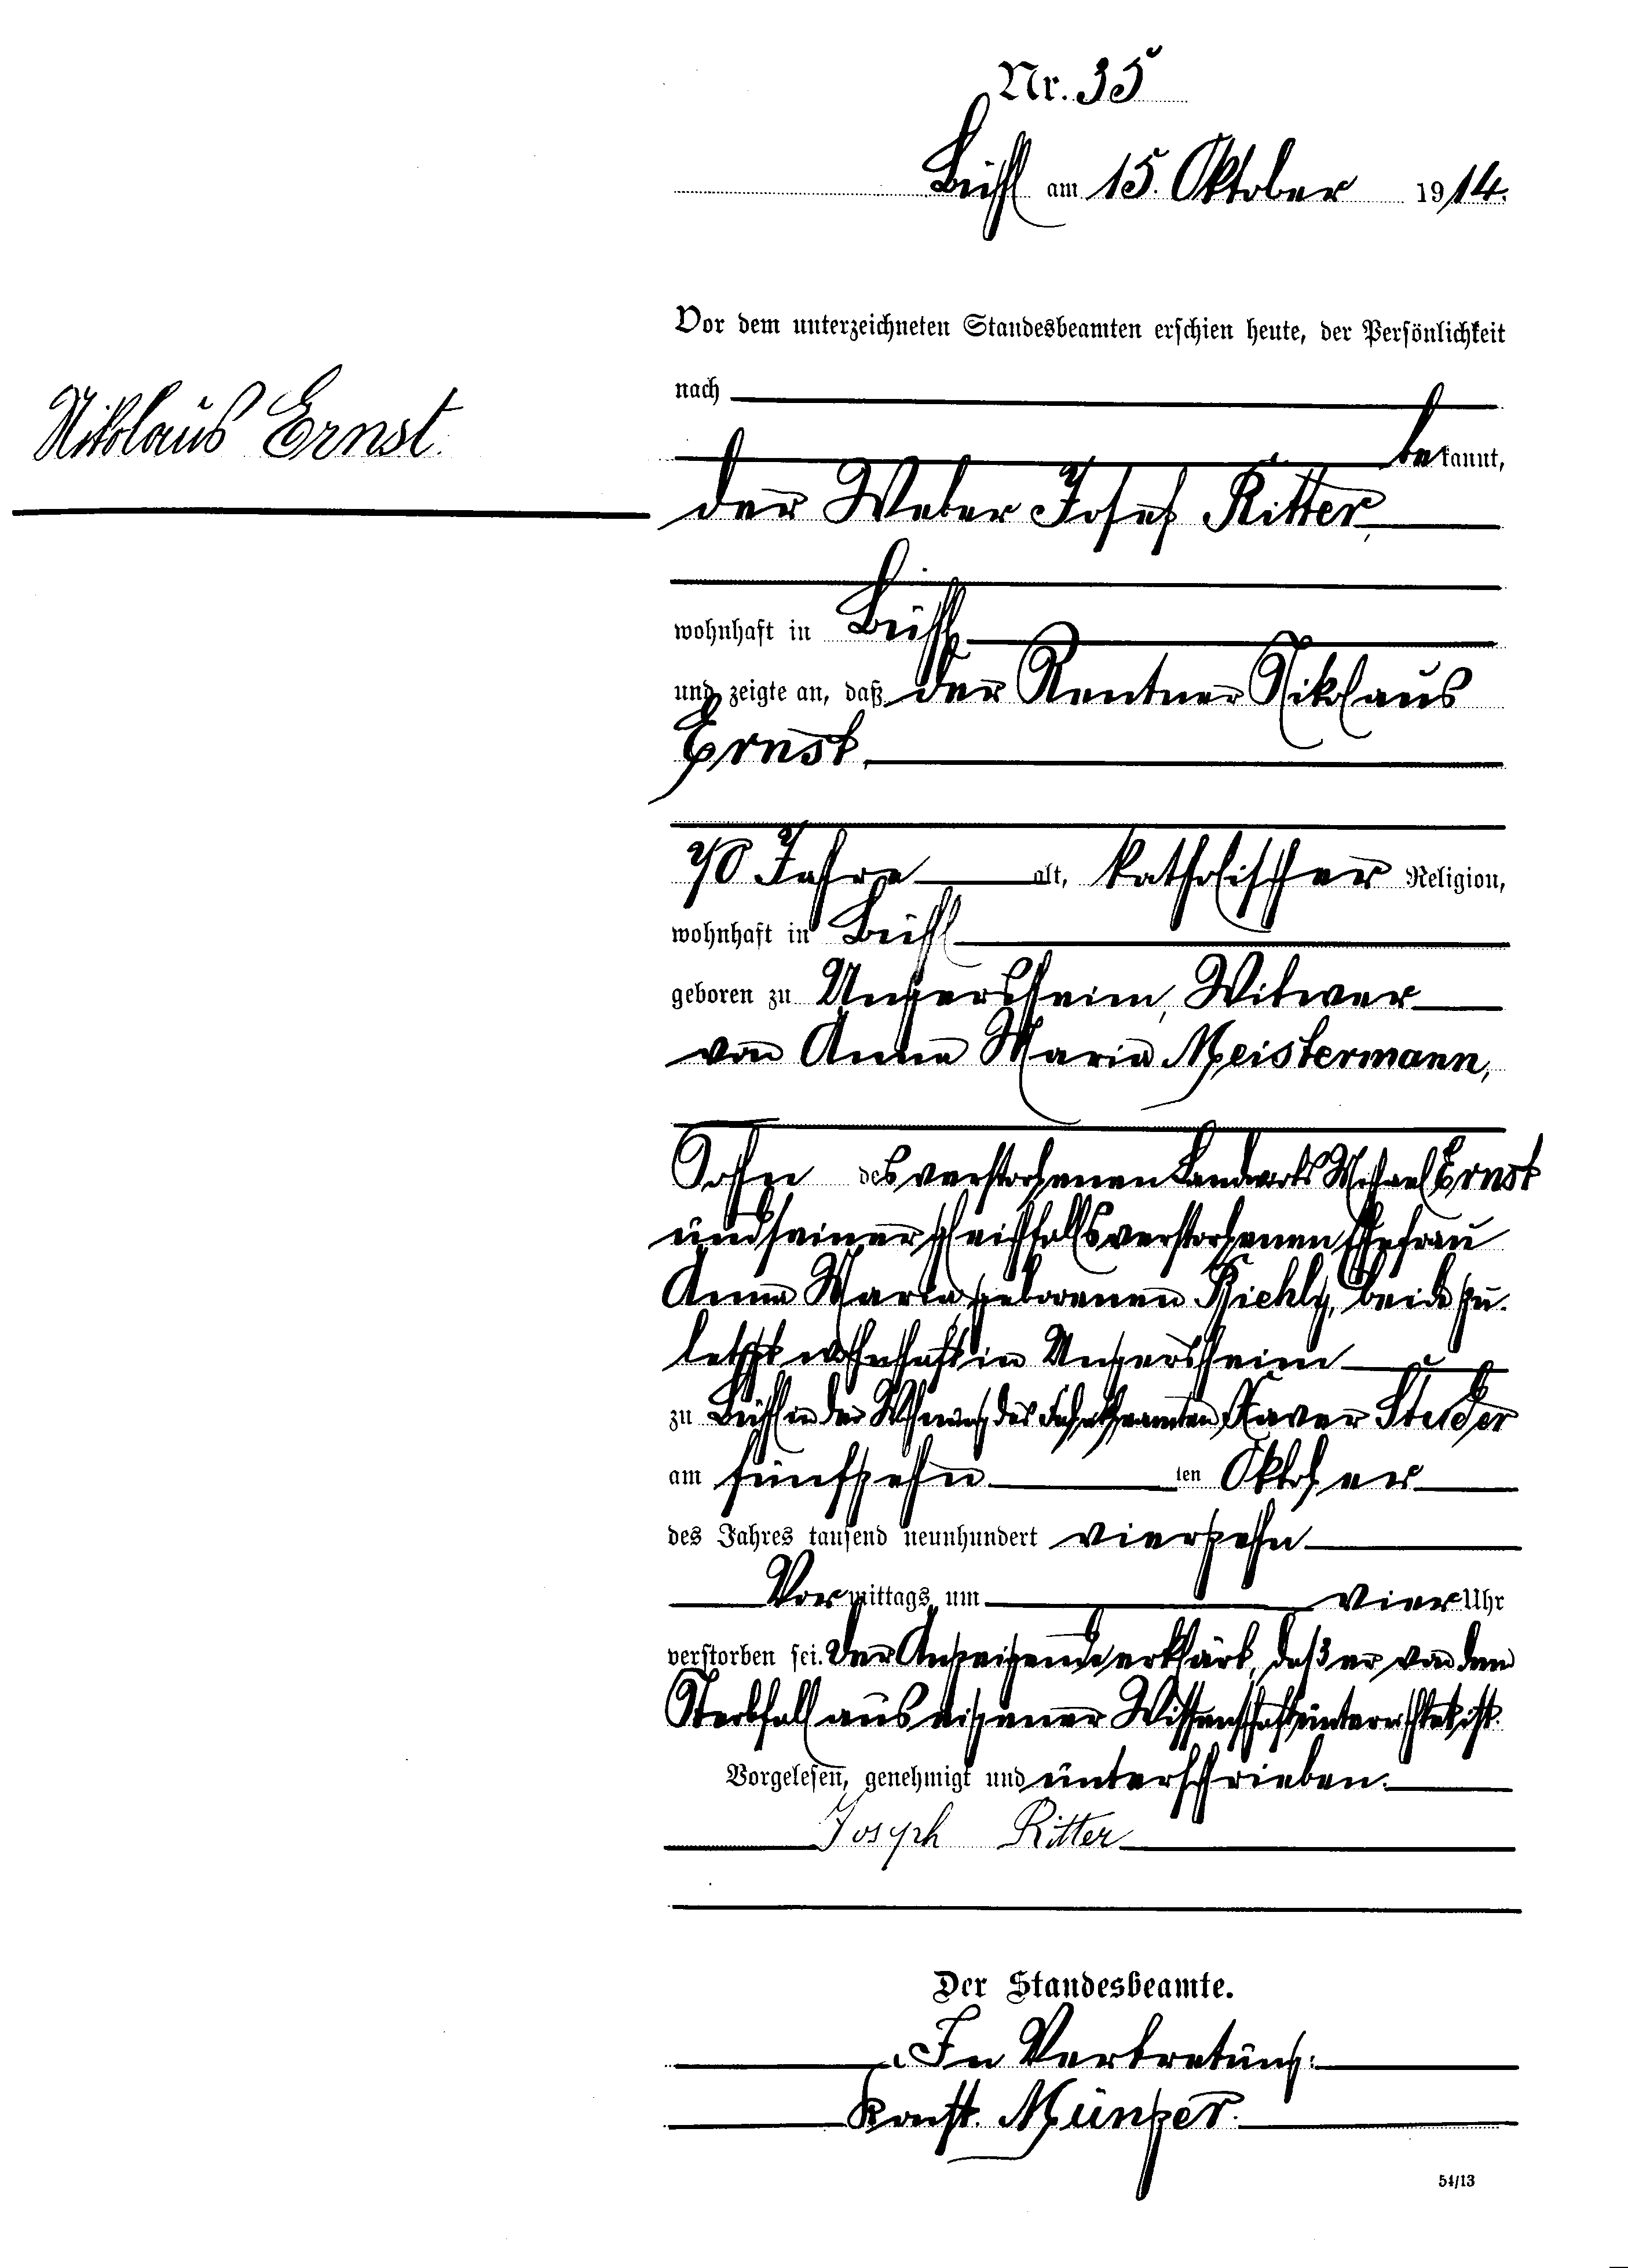 Nr. 35
Bühl am 15. Oktober 1914.
Vor dem unterzeichneten Standesbeamten erschien heute, der Persönlichkeit
nach
Nikolaus Ernst.
bekannt,
der Weber Josef Ritter,
wohnhaft in Bühl,
und zeigte an, daß der Rentner Nikolaus
Ernst,
70 Jahre alt, katholischer Religion,
wohnhaft in Bühl
geboren zu Ungersheim, Witwer
von Anna Maria Meistermann,
Sohn des verstorbenen Landwirts Michael Ernst
und seiner gleichfalls verstorbenen Ehefrau
Anna Maria geborenen Riehly, beide zu-
letzt wohnhaft in Ungersheim
zu Bühl in der Wohnung des Xaver Studer
am fünfzehn ten Oktober
des Jahres tausend neunhundert vierzehn
Vormittags um vier Uhr
verstorben sei. Der Anzeigende erklärt, daß er von dem
Sterbfall aus eigener Wissenschaft unterrichtet ist.
Vorgelesen, genehmigt und unterschrieben.
Joseph Ritter
Der Standesbeamte.
In Vertretung:
Konst. Münzer.
54/13